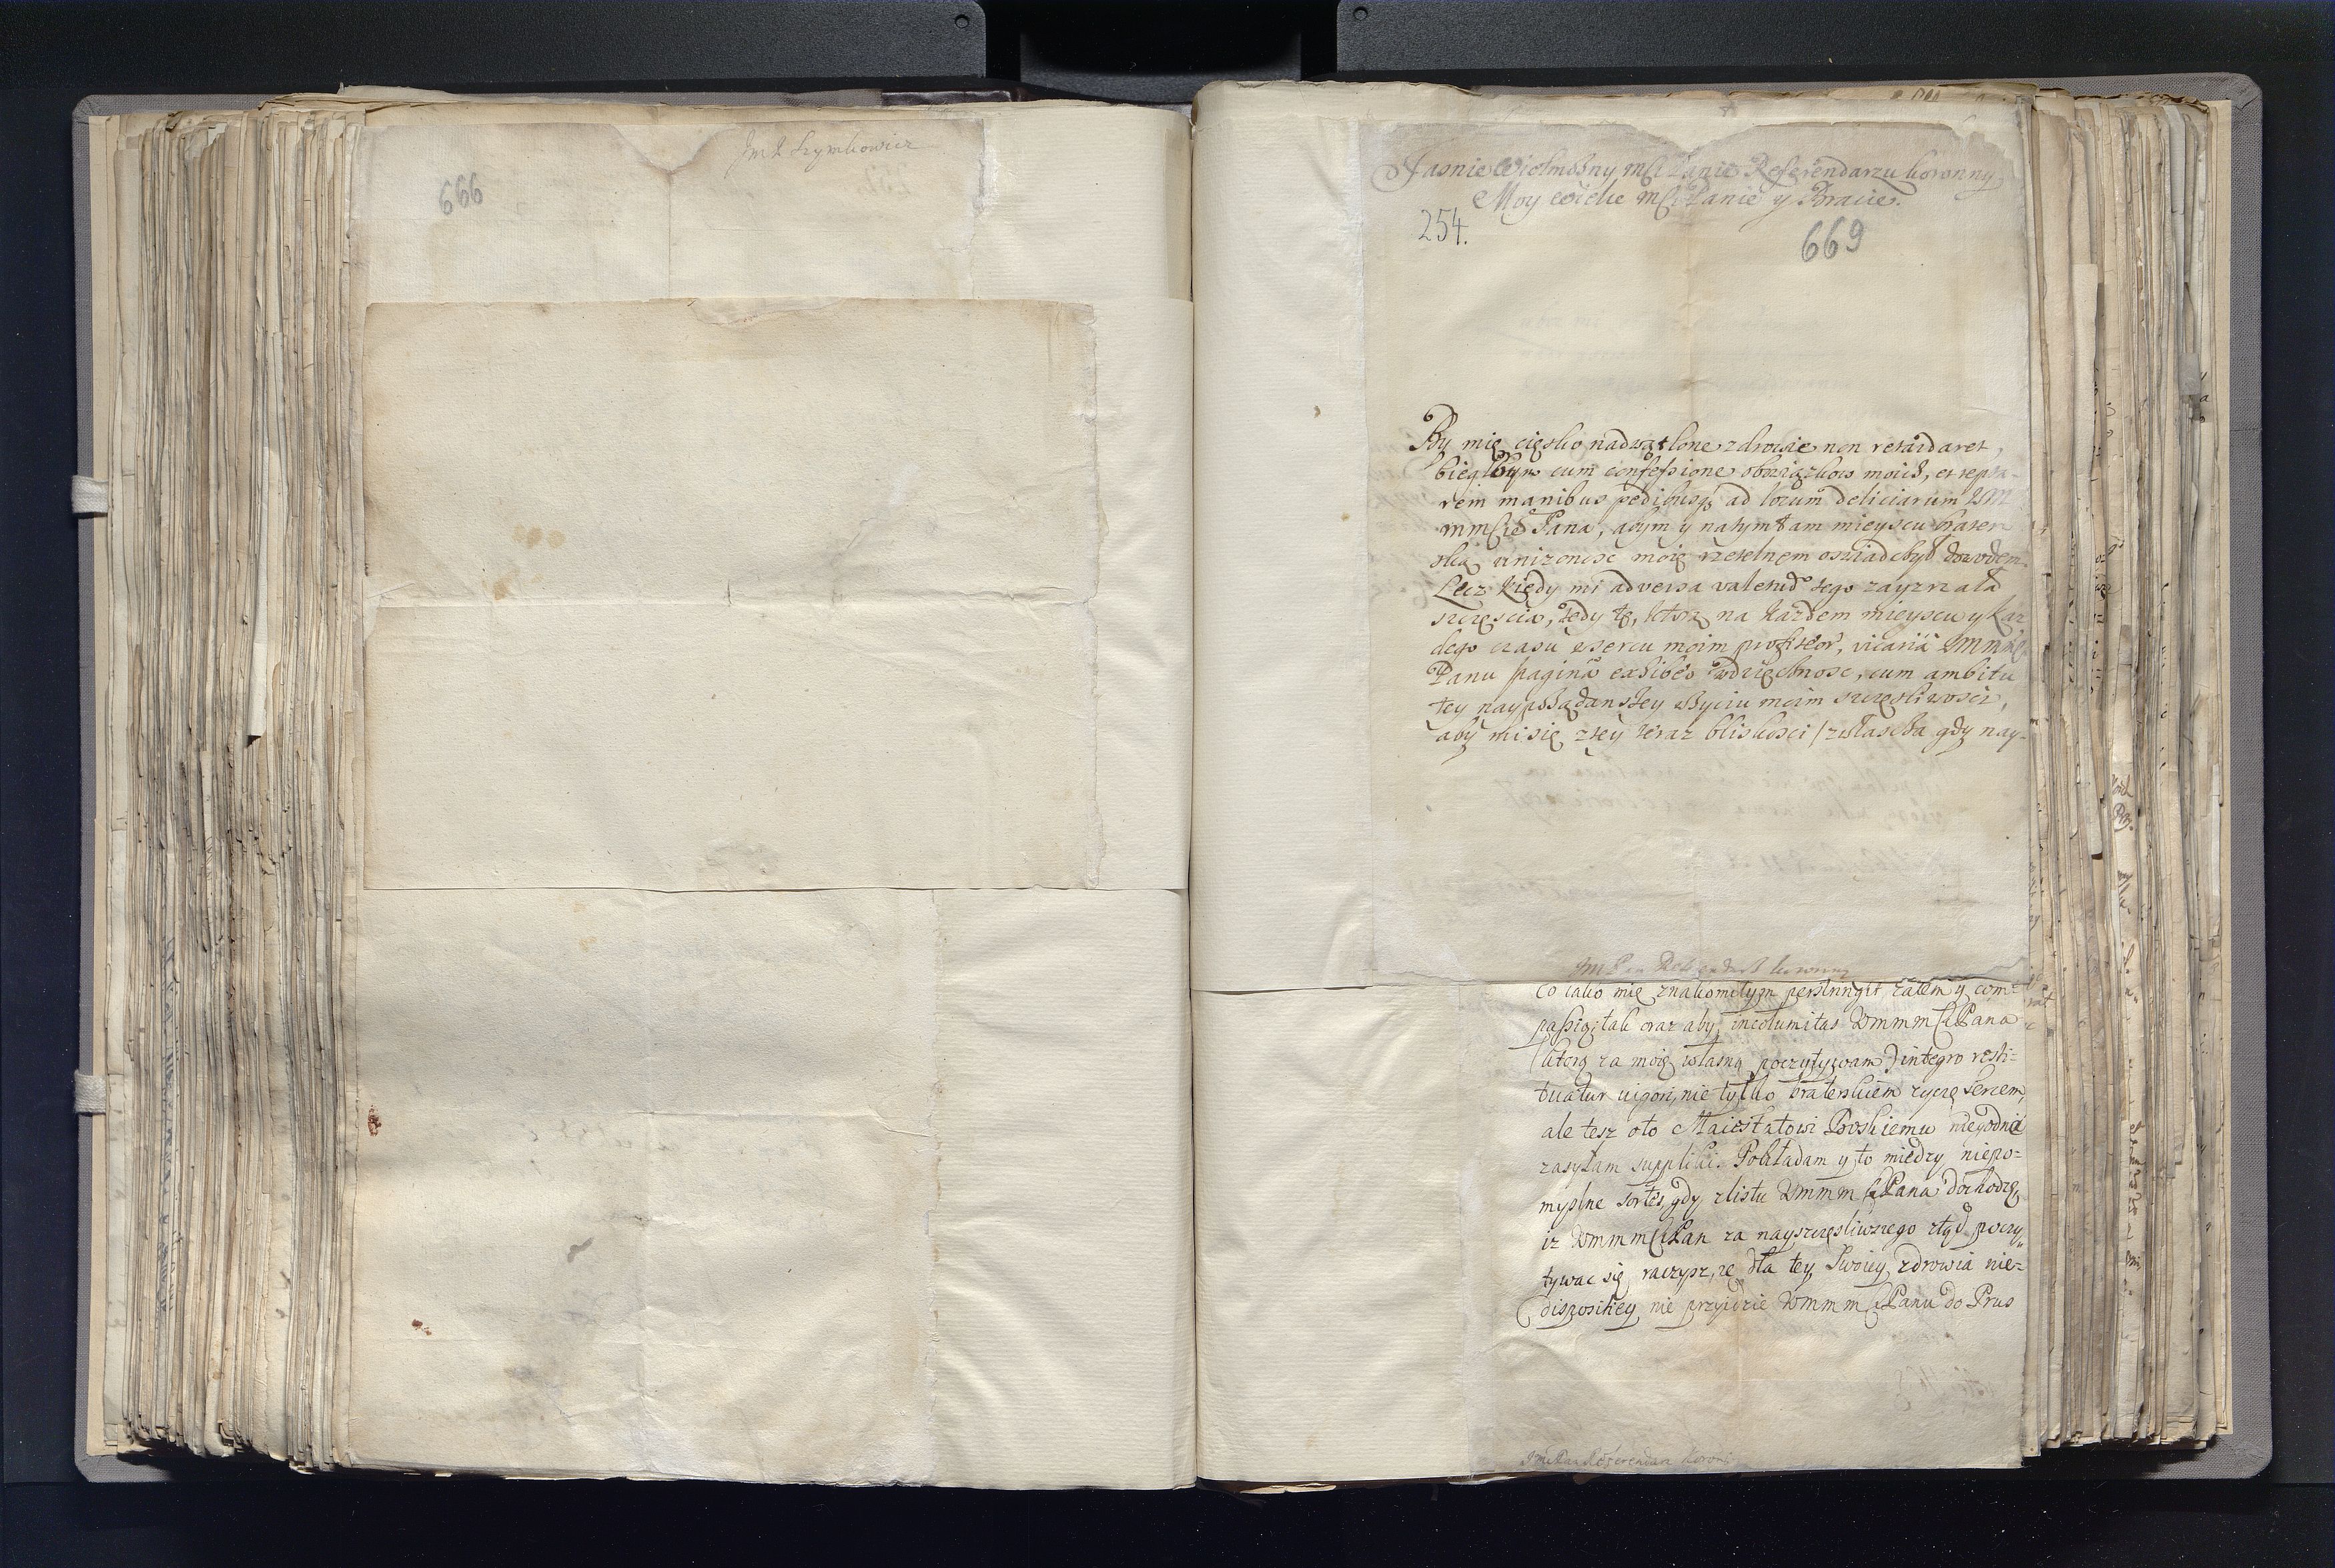 Jm P Szymkowicz
666
Jasnie Wielmożny mći Panie Referendarzu koronny
Moy wielce mći Panie y Bracie.
254.
669
By mię cięsko nadwątlone zdrowie non retardaret,
biegłbym cum confessione obowiązkow moich, et repta-
rem manibus pedibusq ad locum deliciarum WM
mmći Pana, abym y na tym tam mieyscu brater
ską unizonosc moię rzetelnem oswiadczył dowodem.
Lecz kiedy mi adversa valetudo tego zayzrzała
szczęscia, tedy tę, ktorą na kazdem mieyscu y kaz
dego czasu w sercu moim profiteor, vicaria WMmći
Panu pagina exhibeo wdzięcznosc, cum ambitu
tey naypożądanszey w życiu moim szczęsliwosci,
aby mi się z tey teraz bliskosci / zwłaszcza gdy nay-
JM Pan Referendarz koronny
Co iako mię znakomitym perstringit zalem y com-
passią, tak oraz aby incolumitas Wmmmći Pana
(ktorą za moię własną poczytywam) integro resti=
tuatur vigori, nie tylko braterskiem zyczę sercem,
ale tesz oto Maiestatowi Boskiemu niegodne
zasyłam suppliki. Pokładam y to miedzy niepo=
myslne sortes, gdy z listu Wmmmći Pana dochodzę,
iz Wmmmći Pan za nayszczęsliwszego ztąd poczy
tywac się raczysz, ze dla tey Swoiey zdrowia nie=
dispositiey nie przyidzie Wmmmći Panu do Prus
Jm Pan Referendarz Koronny